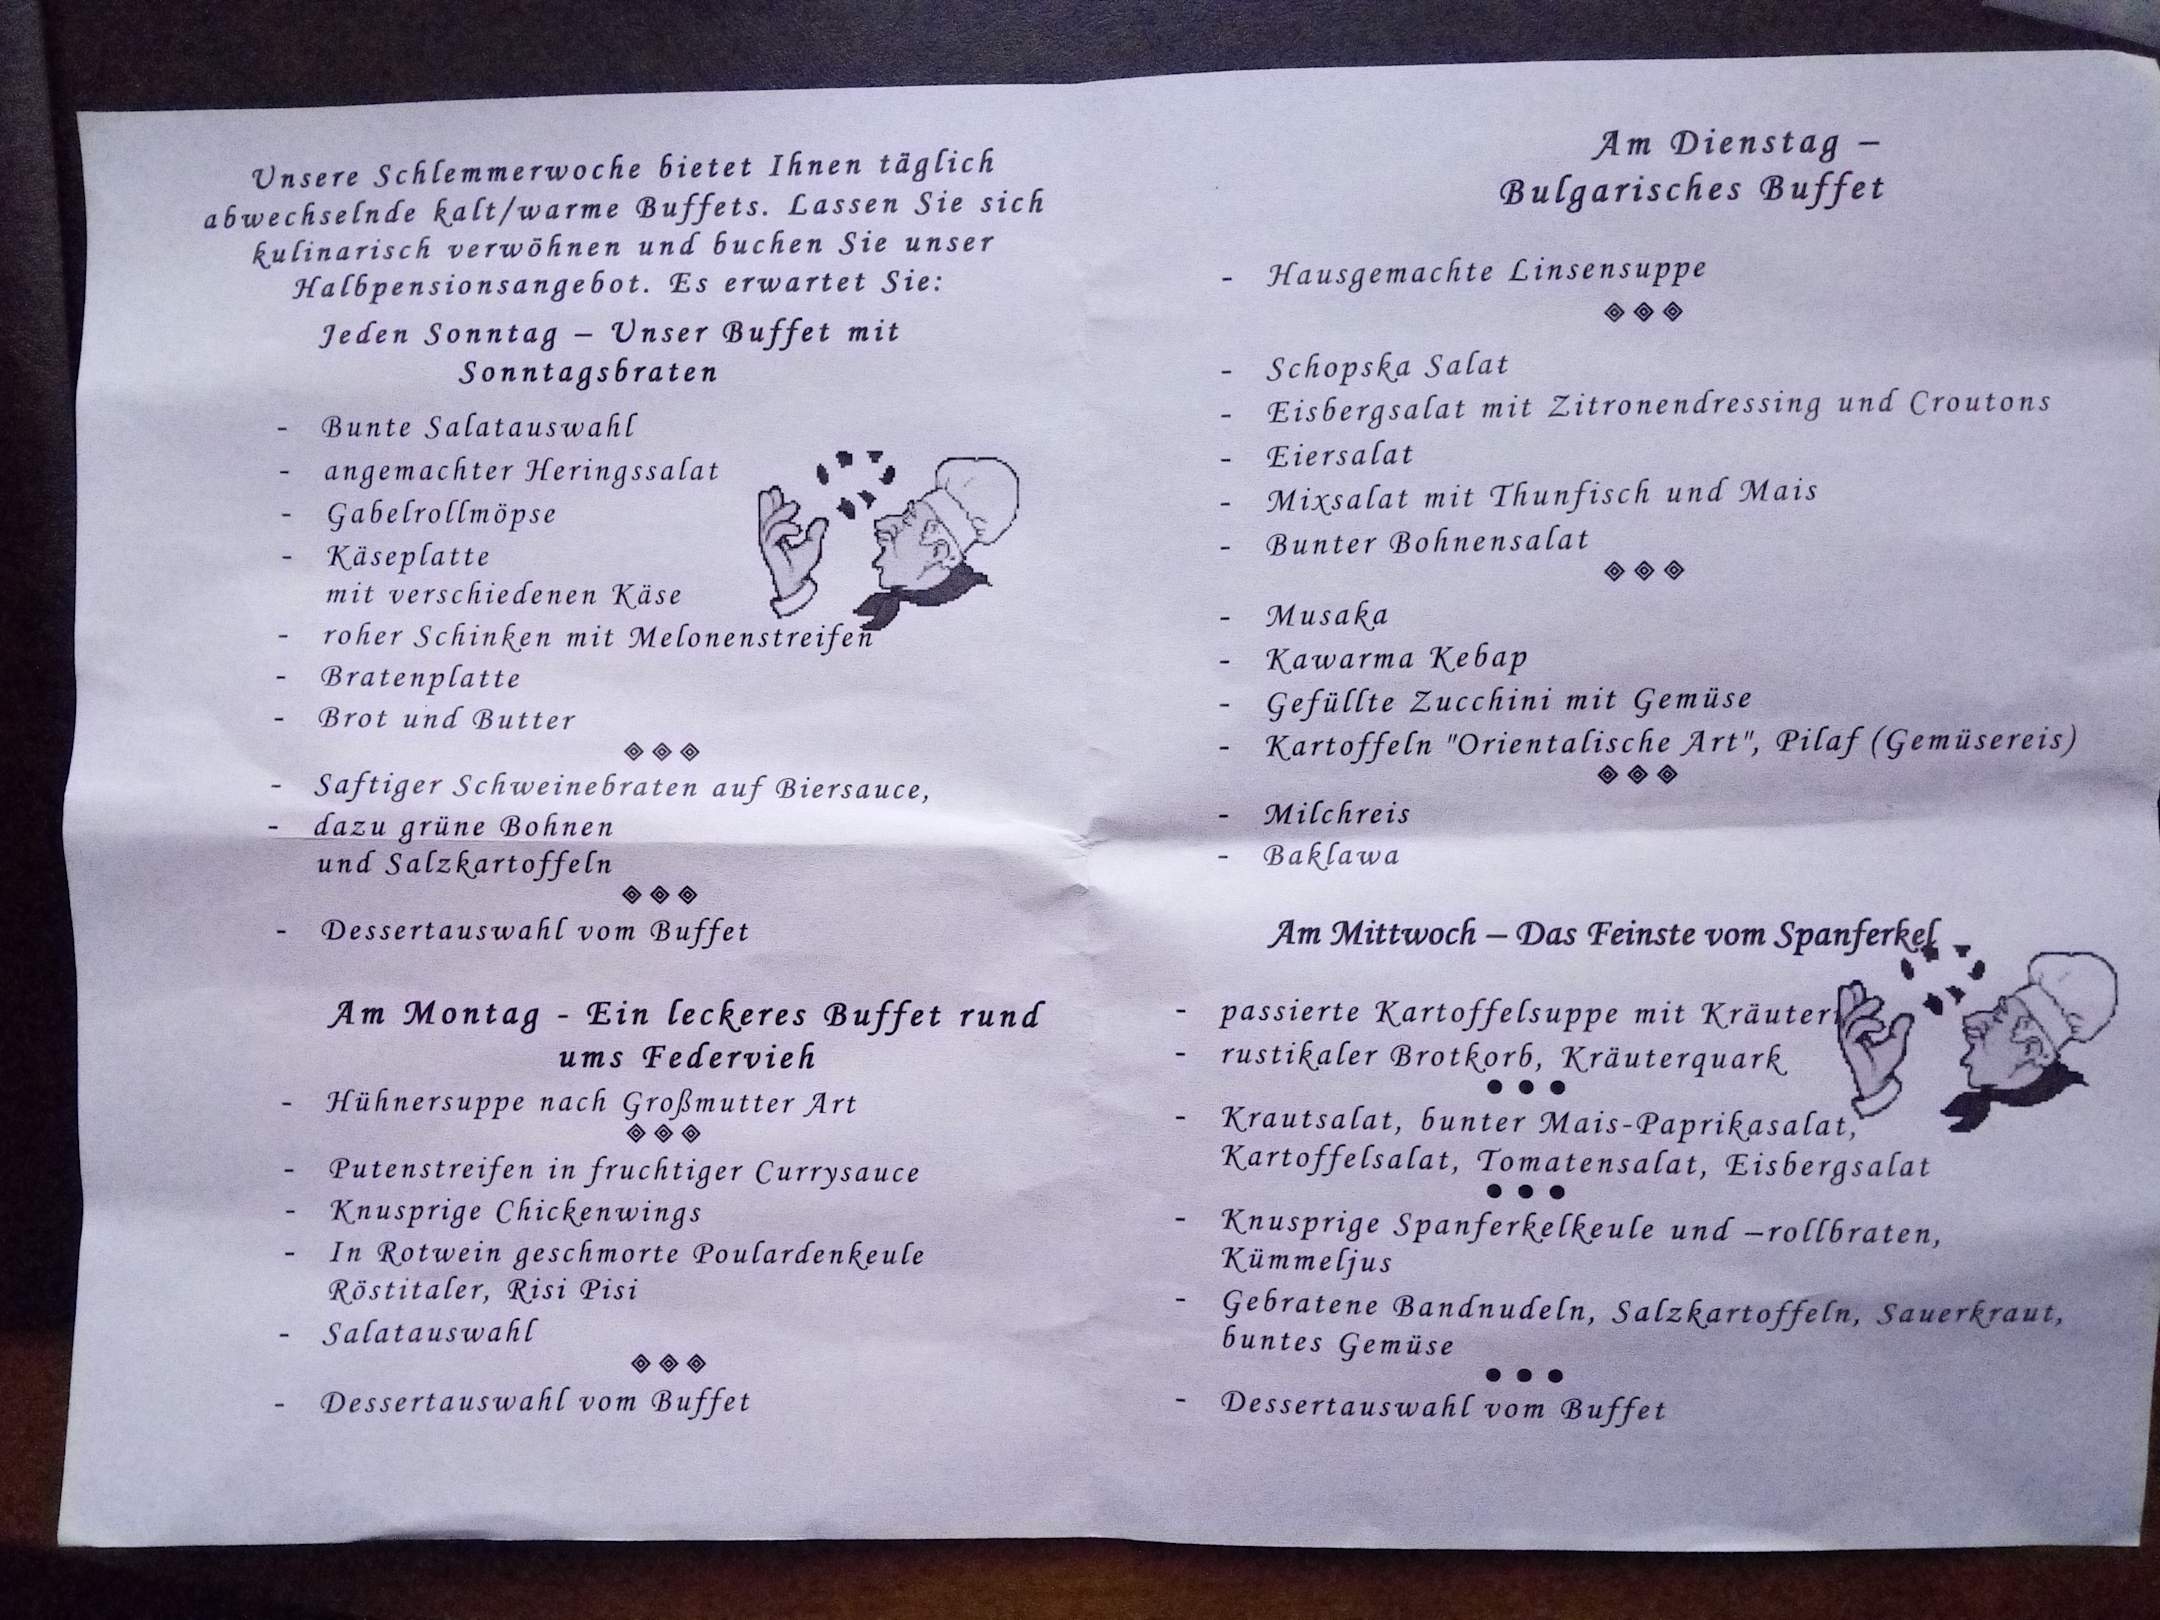 Unsere Schlemmerwoche bietet Ihnen täglich
abwechselnde kalt/warme Buffets. Lassen Sie sich
kulinarisch verwöhnen und buchen Sie unser
Halbpensionsangebot. Es erwartet Sie:
Jeden Sonntag – Unser Buffet mit
Sonntagsbraten
- Bunte Salatauswahl
- angemachter Heringssalat
- Gabelrollmöpse
- Käseplatte
mit verschiedenen Käse
- roher Schinken mit Melonenstreifen
- Bratenplatte
- Brot und Butter
- Saftiger Schweinebraten auf Biersauce,
- dazu grüne Bohnen
und Salzkartoffeln
- Dessertauswahl vom Buffet
Am Montag - Ein leckeres Buffet rund
ums Federvieh
- Hühnersuppe nach Großmutter Art
- Putenstreifen in fruchtiger Currysauce
- Knusprige Chickenwings
- In Rotwein geschmorte Poulardenkeule
Röstitaler, Risi Pisi
- Salatauswahl
- Dessertauswahl vom Buffet
Am Dienstag –
Bulgarisches Buffet
- Hausgemachte Linsensuppe
- Schopska Salat
- Eisbergsalat mit Zitronendressing und Croutons
- Eiersalat
- Mixsalat mit Thunfisch und Mais
- Bunter Bohnensalat
- Musaka
- Kawarma Kebap
- Gefüllte Zucchini mit Gemüse
- Kartoffeln "Orientalische Art", Pilaf (Gemüsereis)
- Milchreis
- Baklawa
Am Mittwoch – Das Feinste vom Spanferkel
- passierte Kartoffelsuppe mit Kräutern
- rustikaler Brotkorb, Kräuterquark
- Krautsalat, bunter Mais-Paprikasalat,
Kartoffelsalat, Tomatensalat, Eisbergsalat
- Knusprige Spanferkelkeule und –rollbraten,
Kümmeljus
- Gebratene Bandnudeln, Salzkartoffeln, Sauerkraut,
buntes Gemüse
- Dessertauswahl vom Buffet